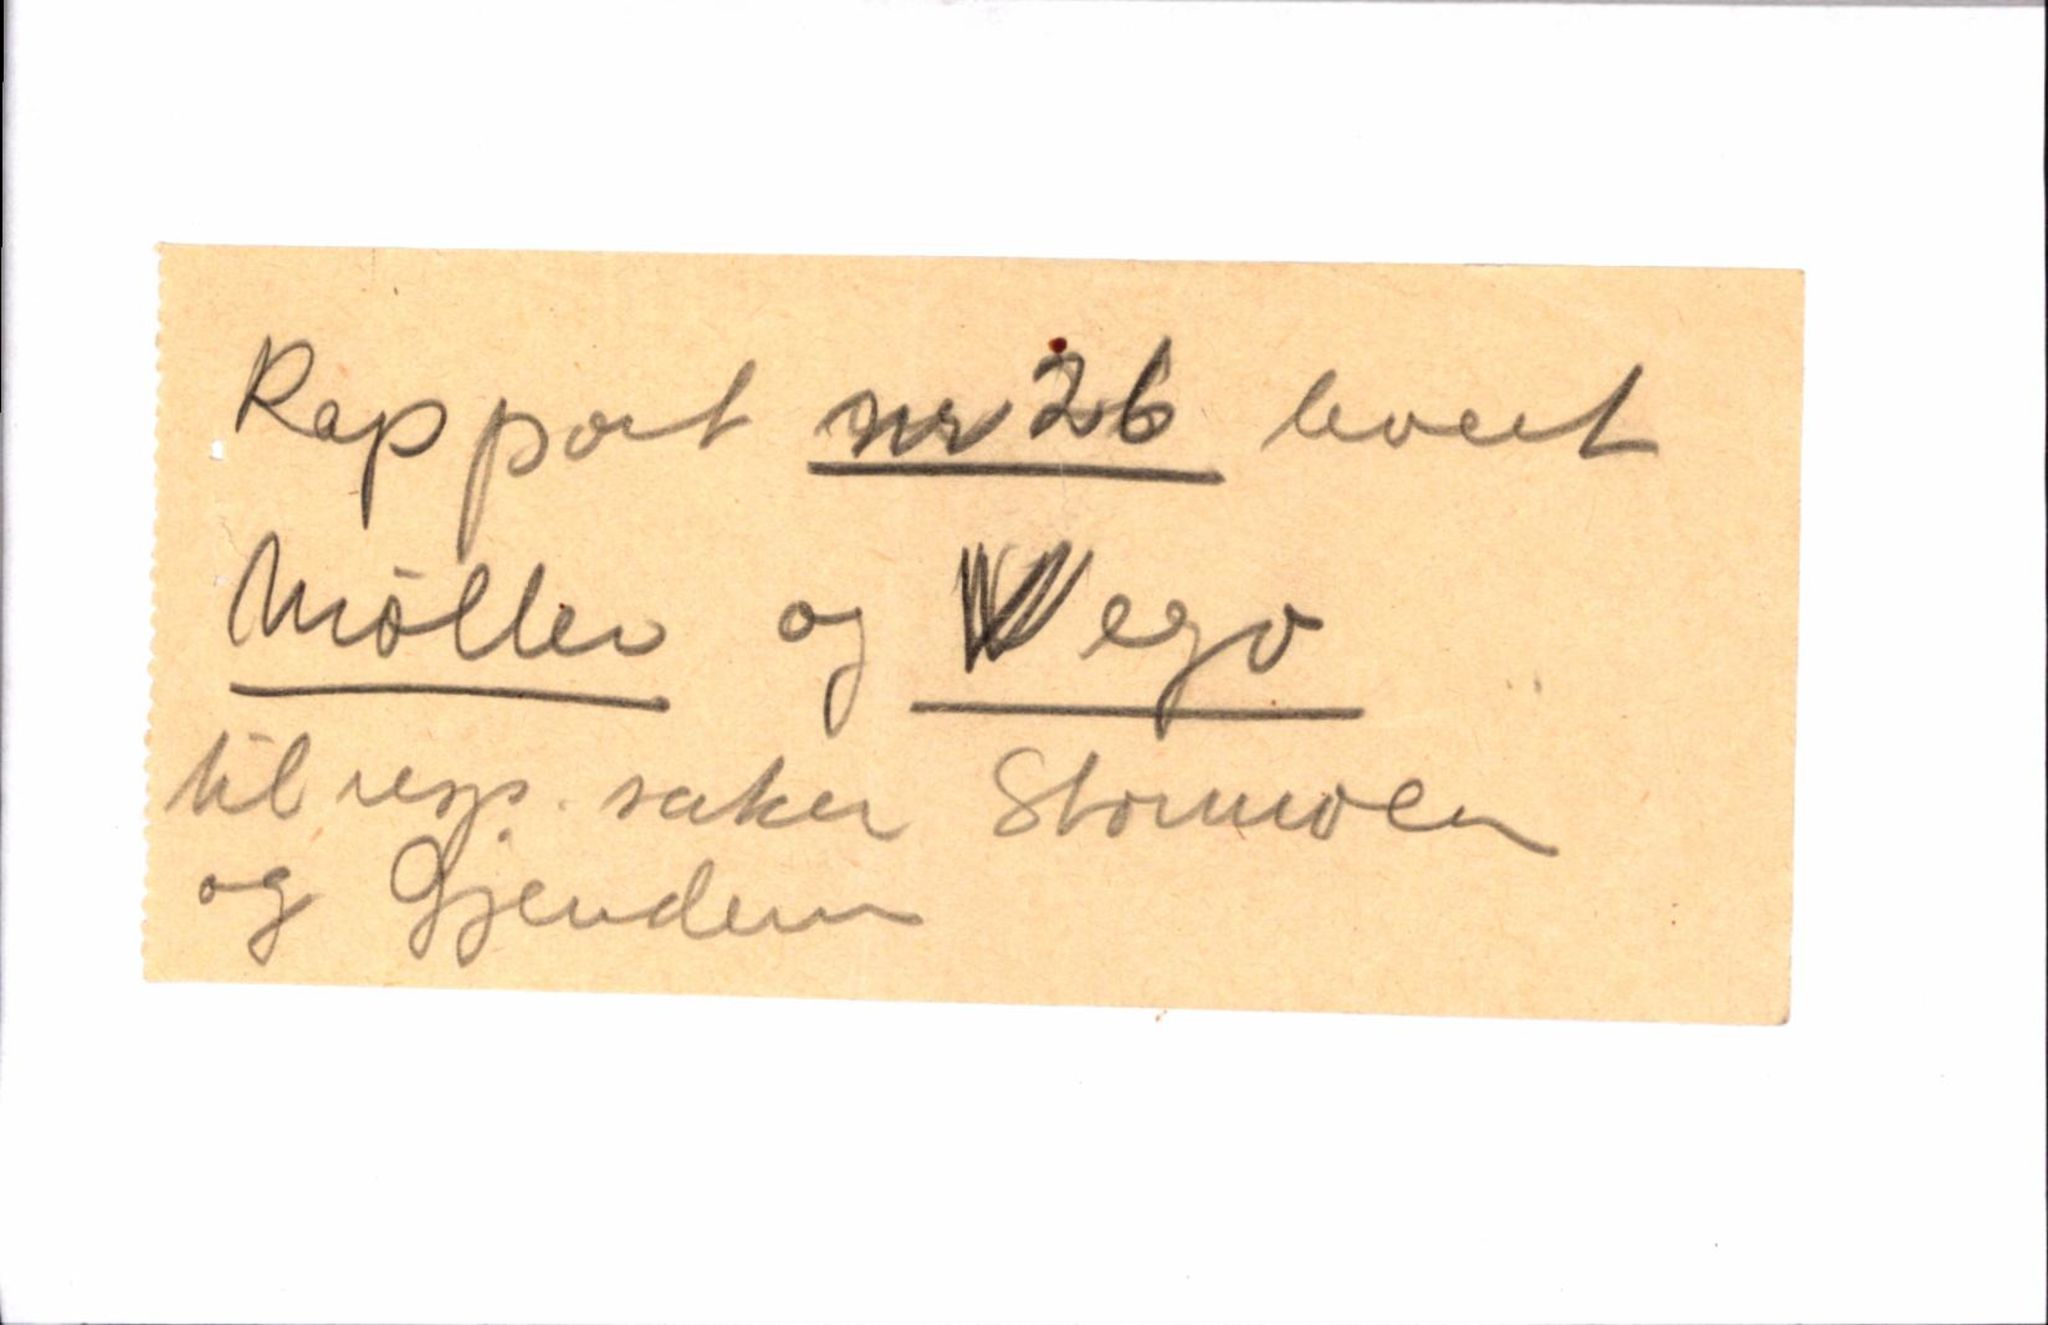 Rapport nr 26 levert
Møller og Wego
til resp. saker Stormoen
og Gjendem